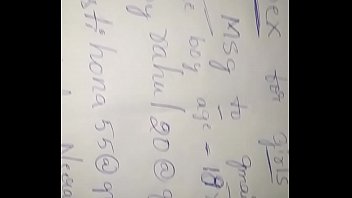 ex for girls
Msg to gmai
boy age - 18
y rahul 20@g
hona 55@g